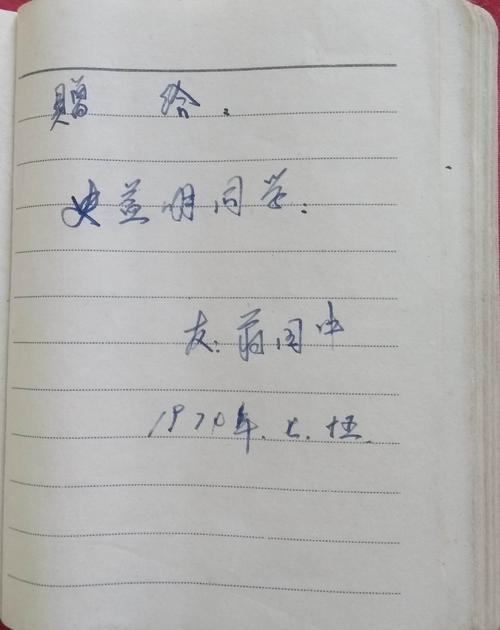 赠给.
史益明同学:
友:蒋国中
1970年.七.十五.